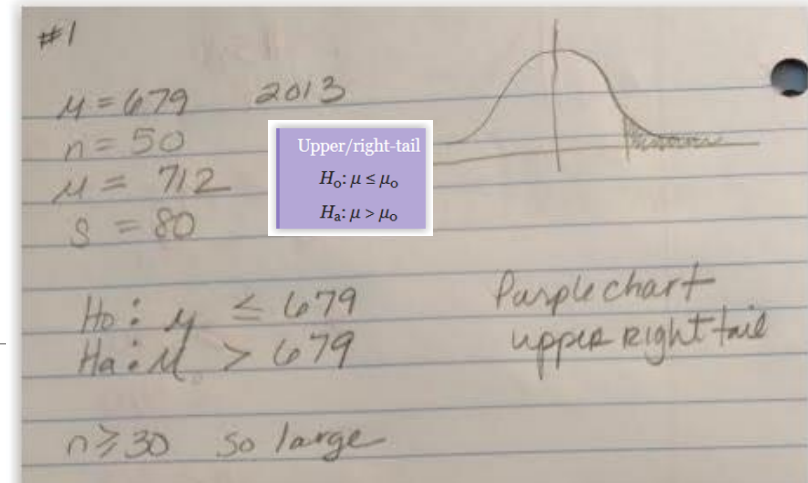 #1
μ = 679 2013
n = 50
μ = 712
s = 80
Upper/right-tail
H₀: μ ≤ μ₀
Hₐ: μ > μ₀
Ho: μ ≤ 679
Ha: μ > 679
Purple chart
upper right tail
n ≥ 30 so large